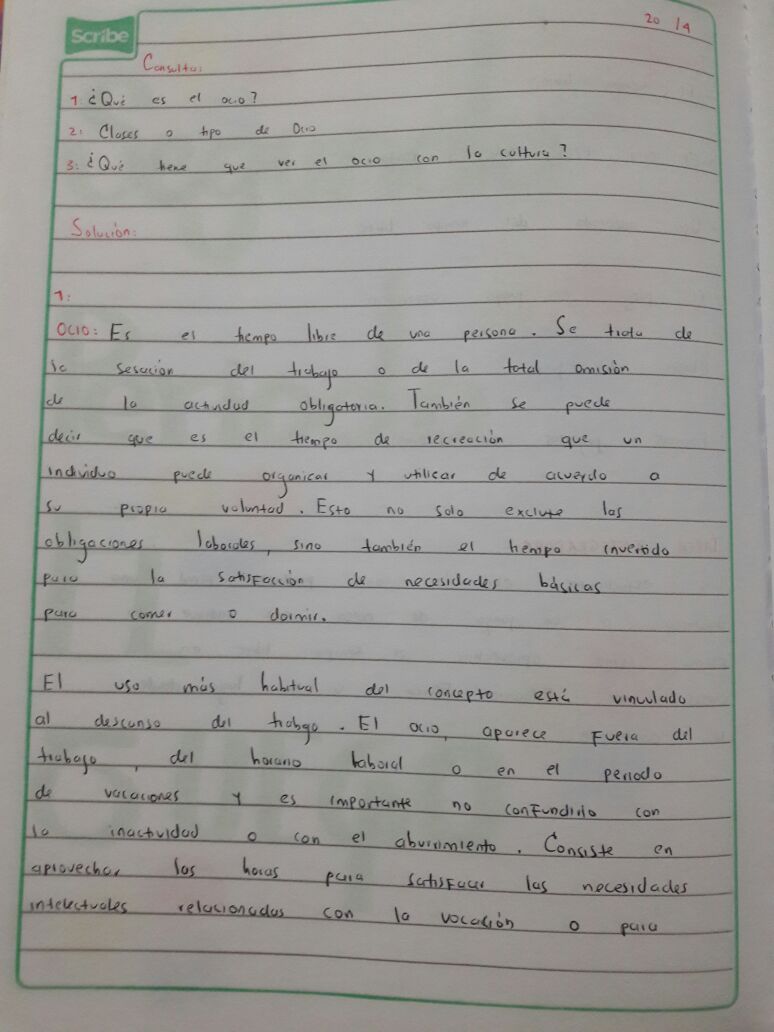 Scribe
20 / 4
Consulta:
1. ¿Qué es el ocio?
2: Clases o tipo de Ocio
3: ¿Qué tiene que ver el ocio con la cultura?
Solución:
1:
OCIO: Es el tiempo libre de una persona. Se trata de
la sesación del trabajo o de la total omisión
de la actividad obligatoria. También se puede
decir que es el tiempo de recreación que un
individuo puede organicar y utilicar de acuerdo a
su propia voluntad. Esto no solo exclute las
obligaciones laborales, sino también el tiempo invertido
para la satisfacción de necesidades básicas
para comer o dormir.
El uso más habitual del concepto está vinculado
al descanso del trabajo. El ocio, aparece fuera del
trabajo, del horario laboral o en el periodo
de vacaciones y es importante no confundirlo con
la inactividad o con el aburrimiento. Consiste en
aprovechar las horas para satisfacer las necesidades
intelectuales relacionadas con la vocación o para